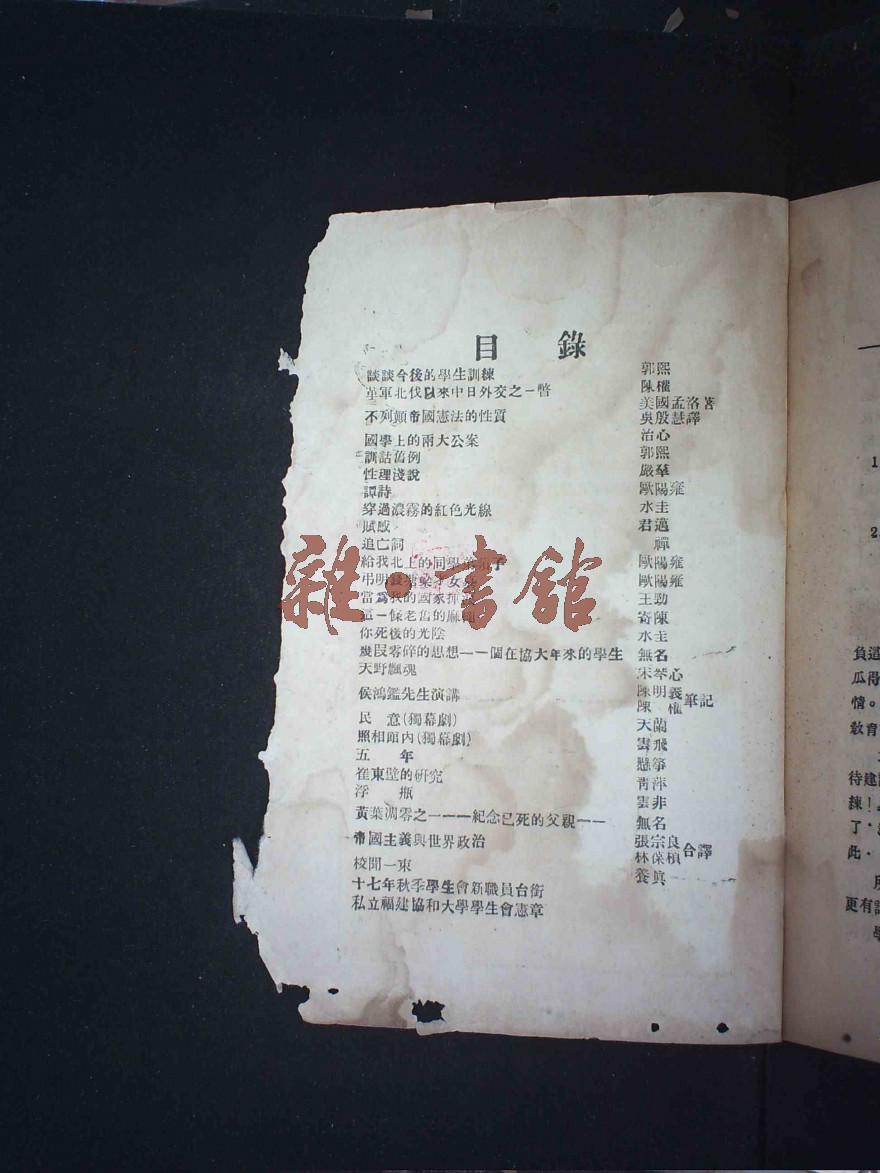 目 錄
談談今後的學生訓練 郭熙
革軍北伐以來中日外交之一瞥 陳權
不列顛帝國憲法的性質 美國孟洛著 吳殷慧譯
國學上的兩大公案 治心
訓詁舊例 郭熙
性理淺說 嚴羣
譚詩 歐陽雍
穿過濃霧的紅色光線 水圭
賦感 君邁
追亡詞 禪
給我北上的同學 歐陽雍
弔明 才女 歐陽雍
當爲我的國家揮 王勁
這一條老舊的麻 寄陳
你死後的光陰 水圭
幾段零碎的思想——關在協大年來的學生 無名
天野飄魂 宋琴心
侯鴻鑑先生演講 陳明義 陳權 筆記
民意(獨幕劇) 天蘭
照相館內(獨幕劇) 雲飛
五年 懸箏
崔東壁的研究 靑萍
浮瓶 雲非
黃葉凋零之一——紀念已死的父親—— 無名
帝國主義與世界政治 張宗良 林保楨 合譯
校聞一束 養眞
十七年秋季學生會新職員台銜
私立福建協和大學學生會憲章
雜·書館
1
2.
負這
瓜得
情。
敎育
待建
練！
了．
此．
所
更有